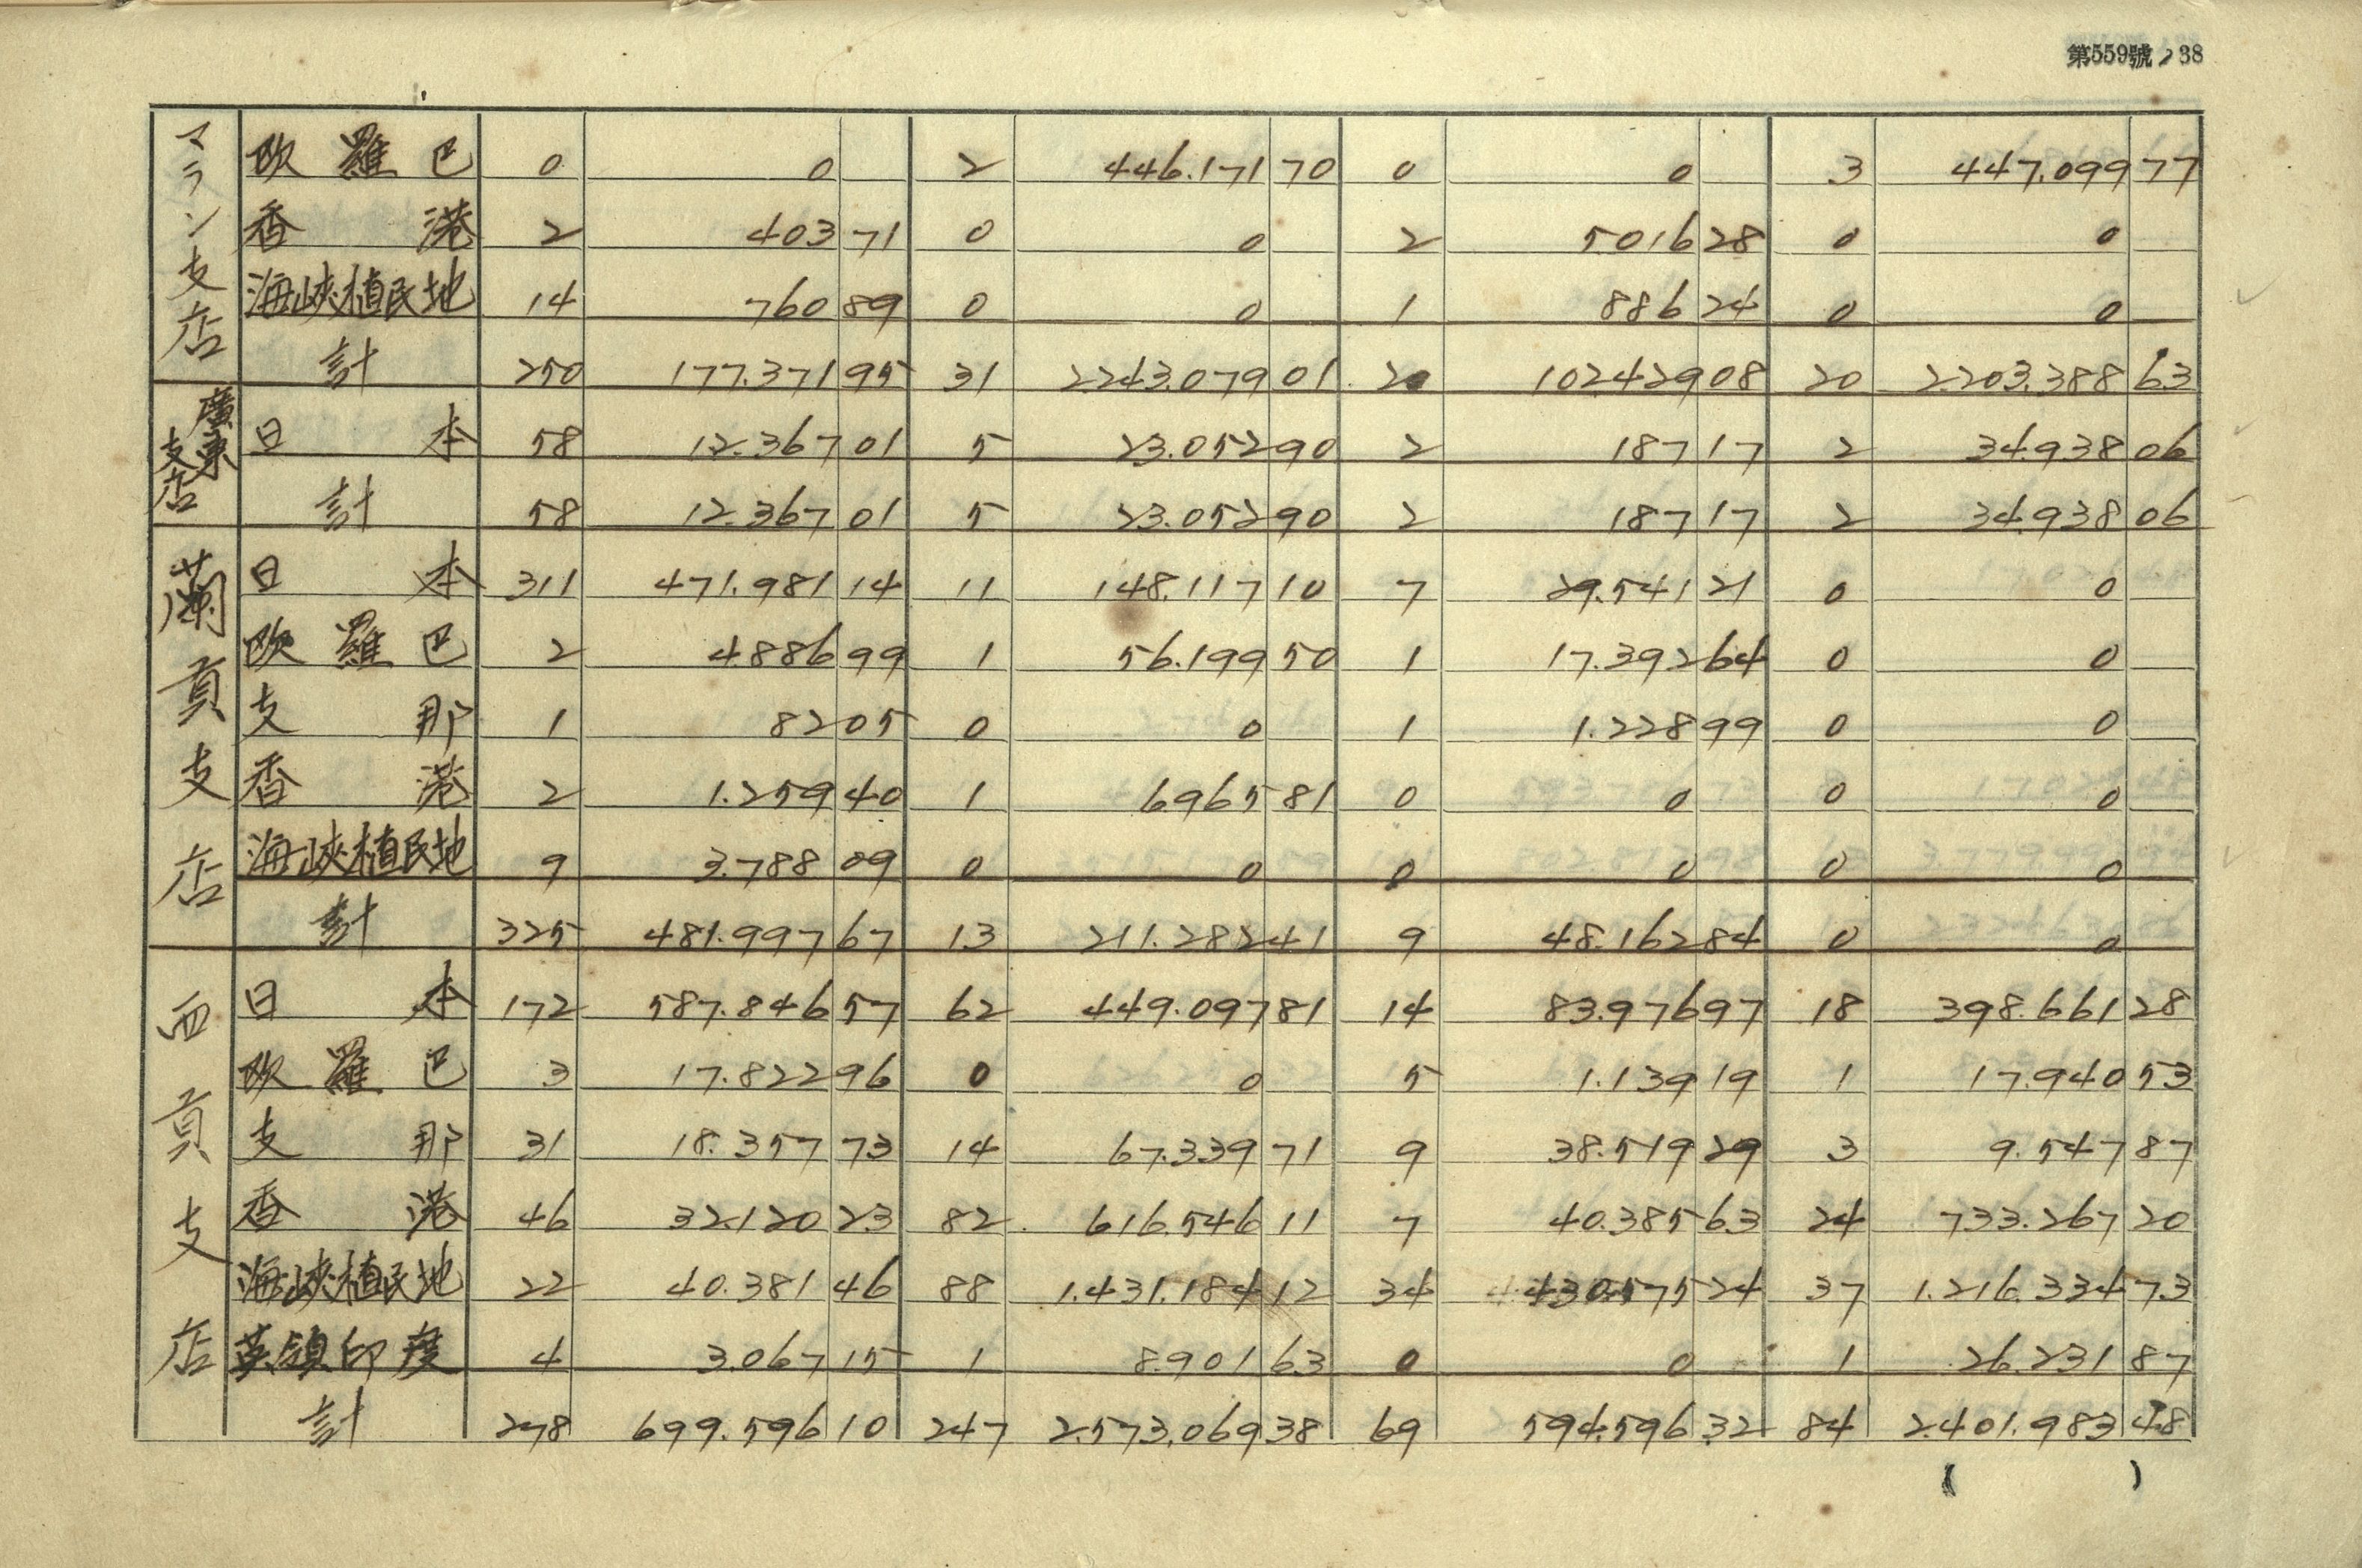 第559號 38
マラン支店
欧羅巴 0 0 2 446.171 70 0 0 3 447.099 77
香港 2 403 71 0 0 2 5016 28 0 0
海峽植民地 14 760 89 0 0 1 886 24 0 0
計 250 177.371 95 31 2.243.079 01 20 102429 08 20 2.203.388 63
廣東支店
日本 58 12.367 01 5 23.052 90 2 187 17 2 34.938 06
計 58 12.367 01 5 23.052 90 2 187 17 2 34.938 06
蘭貢支店
日本 311 471.981 14 11 148.117 10 7 29.541 21 0 0
欧羅巴 2 4886 99 1 56.199 50 1 17.392 64 0 0
支那 1 82 05 0 0 1 1.228 99 0 0
香港 2 1.259 40 1 6965 81 0 0 0 0
海峽植民地 9 3.788 09 0 0 0 0 0 0
計 325 481.997 67 13 211.282 41 9 48.162 84 0 0
西貢支店
日本 172 587.846 57 62 449.097 81 14 83.976 97 18 398.661 28
欧羅巴 3 17.822 96 0 0 5 1.139 19 1 17.940 53
支那 31 18.357 73 14 67.339 71 9 38.519 29 3 9.547 87
香港 46 32.120 23 82 616.546 11 7 40.385 63 24 733.267 20
海峽植民地 22 40.381 46 88 1.431.184 12 34 430.575 24 37 1.216.334 73
英領印度 4 3.067 15 1 8.901 63 0 0 1 26.231 87
計 278 699.596 10 247 2.573.069 38 69 594.596 32 84 2.401.983 48
( )